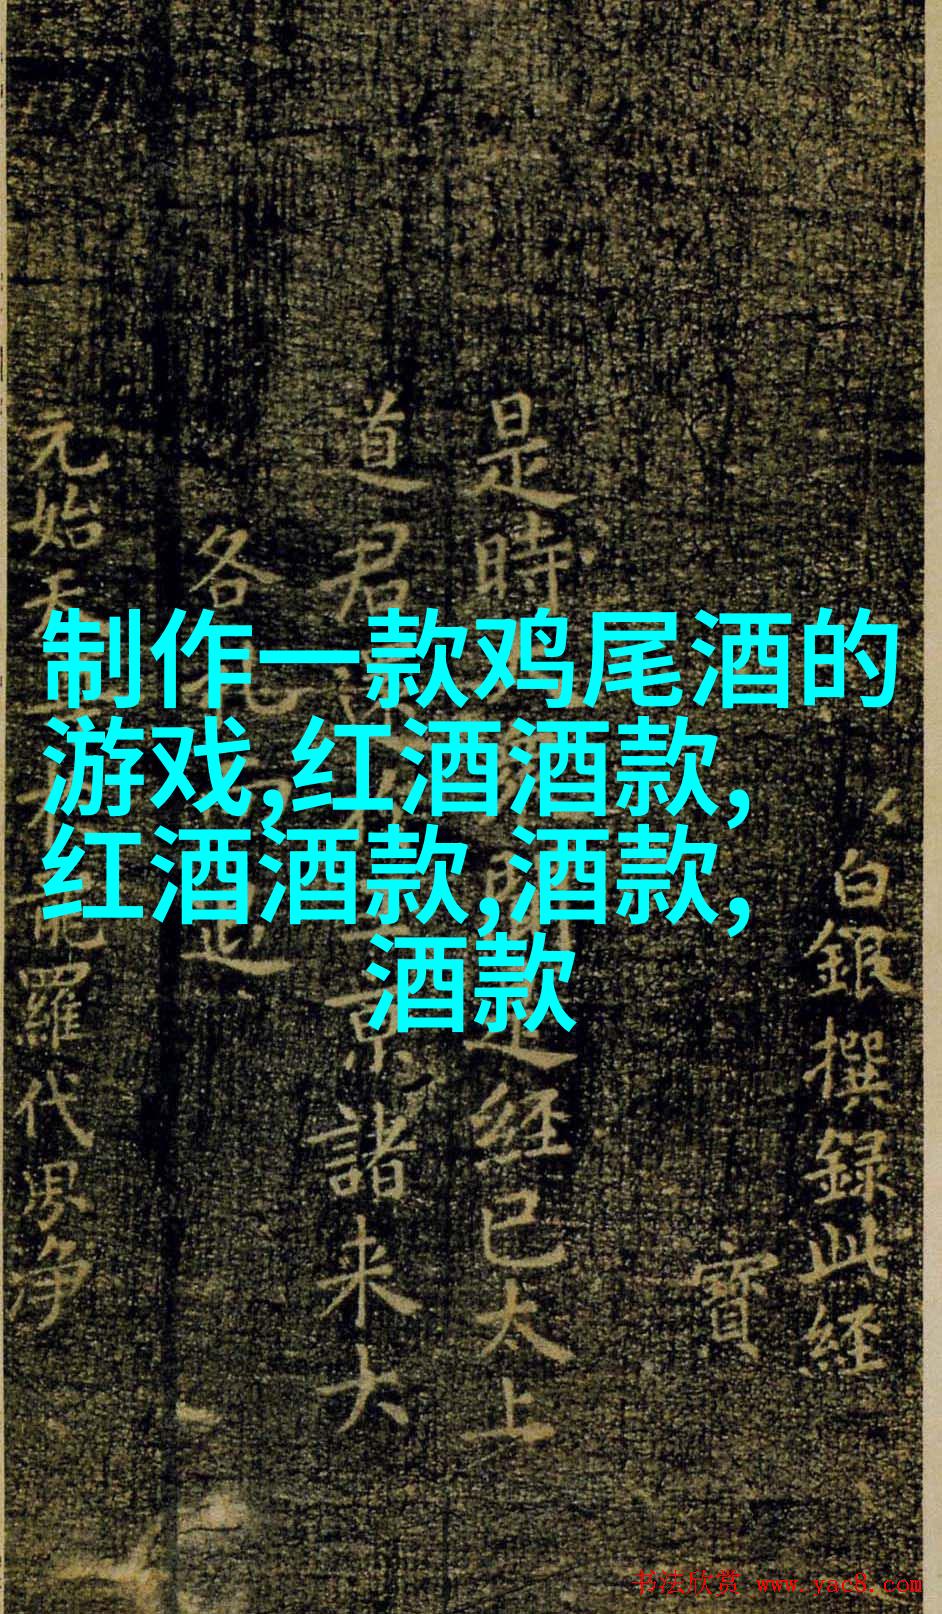 制作一款鸡尾酒的
游戏,红酒酒款,
红酒酒款,酒款,
酒款
白銀撰録此經
寶
是時
經已太上
道君
京諸来大
各
元始天
羅代界净
书法欣赏 www.yac8.com